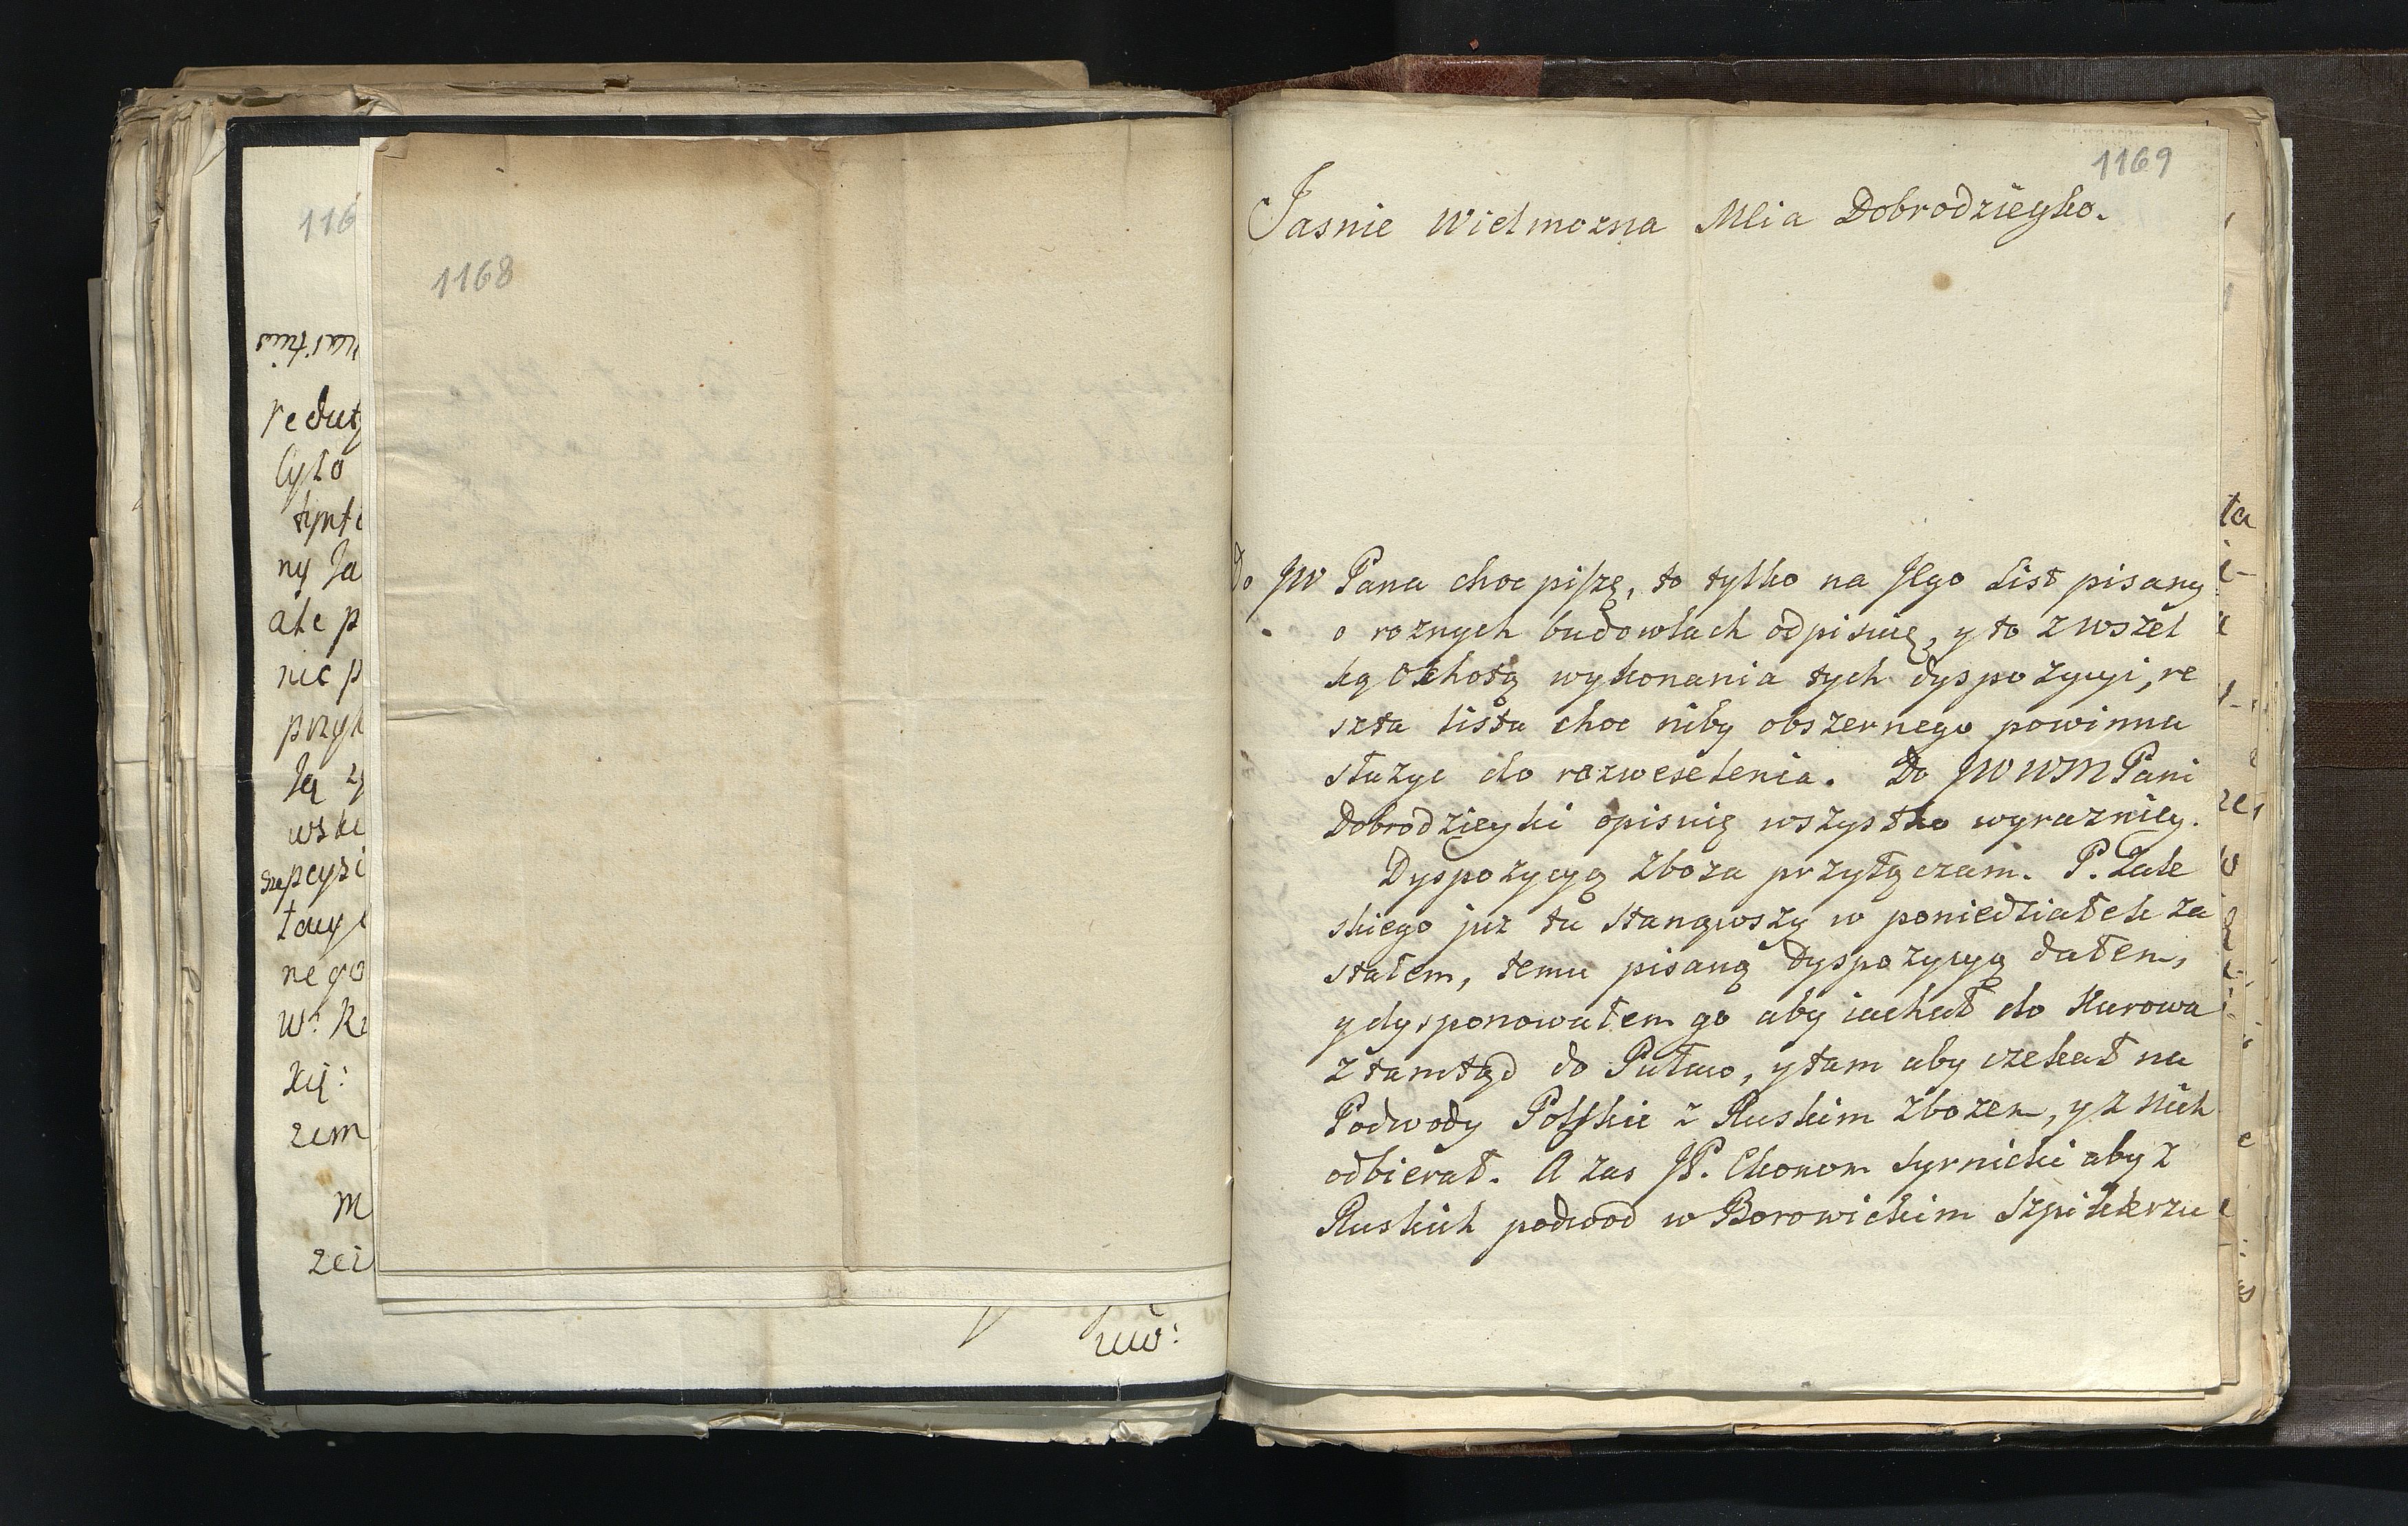 116
1168
redut
Cyło
ny Ja
ale p
nic p
przyk
negо
zem
1169
Jasnie Wielmozna Mcia Dobrodzieyko.
Do JW Pana choc piszę, to tylko na Jego List pisany
o roznych budowlach odpisuię, y to z wszel
ką ochotą wykonania tych dyspozycyi, re
szta listu choc niby obszernego powinna
służyc do rozweselenia. Do JWWM Pani
Dobrodzieyki opisuię wszystko wyrazniey.
Dyspozycyą zboza przyłączam. P. Zale
skiego juz tu stanąwszy w poniedziałek za
stałem, temu pisaną Dyspozycyą dałem,
y dysponowałem go aby iachał do Kurowa
z tamtąd do Puław, y tam aby czekał na
Podwody Polskie z Ruskim zbozem, y z nich
odbierał. A zas JP. Ekonom Syrnicki aby z
Ruskich podwod w Borowickim Szpiklerzu